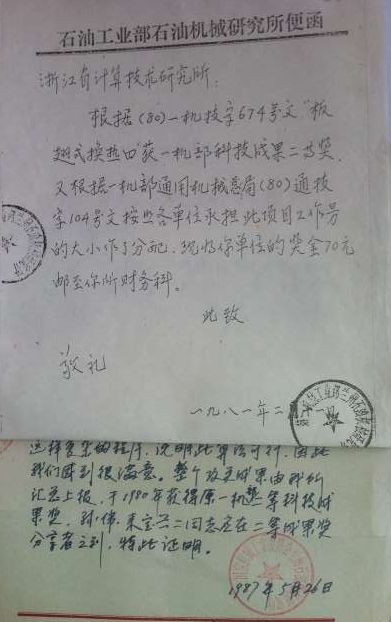 石油工业部石油机械研究所便函
浙江省计算技术研究所:
根据(80)一机技字674号文“板
翅式换热四”获一机部科技成果二等奖,
又根据一机部通用机械总局(80)通技
字104号文按照各单位承担此项目工作量
的大小作了分配,现将你单位的奖金70元
邮至你所财务科。
此致
敬礼
一九八一年二
这样复杂的程序,说明此算法可行,因此
我们感到很满意。整个攻关成果由我所
汇总上报,于1980年获得原一机部二等科技成
果奖,孙伟、来宝兴二同志应在二等成果奖
分享者之列,特此证明。
1987年5月26日